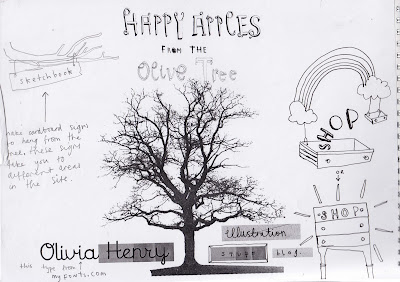 HAPPY APPLES
FROM THE
Olive Tree
sketchbook
make cardboard signs
to hang from the
tree. these signs
take you to
different areas
in the site.
SHOP
OR
SHOP
Illustration
blog.
Olivia Henry
this type from
myfonts.com